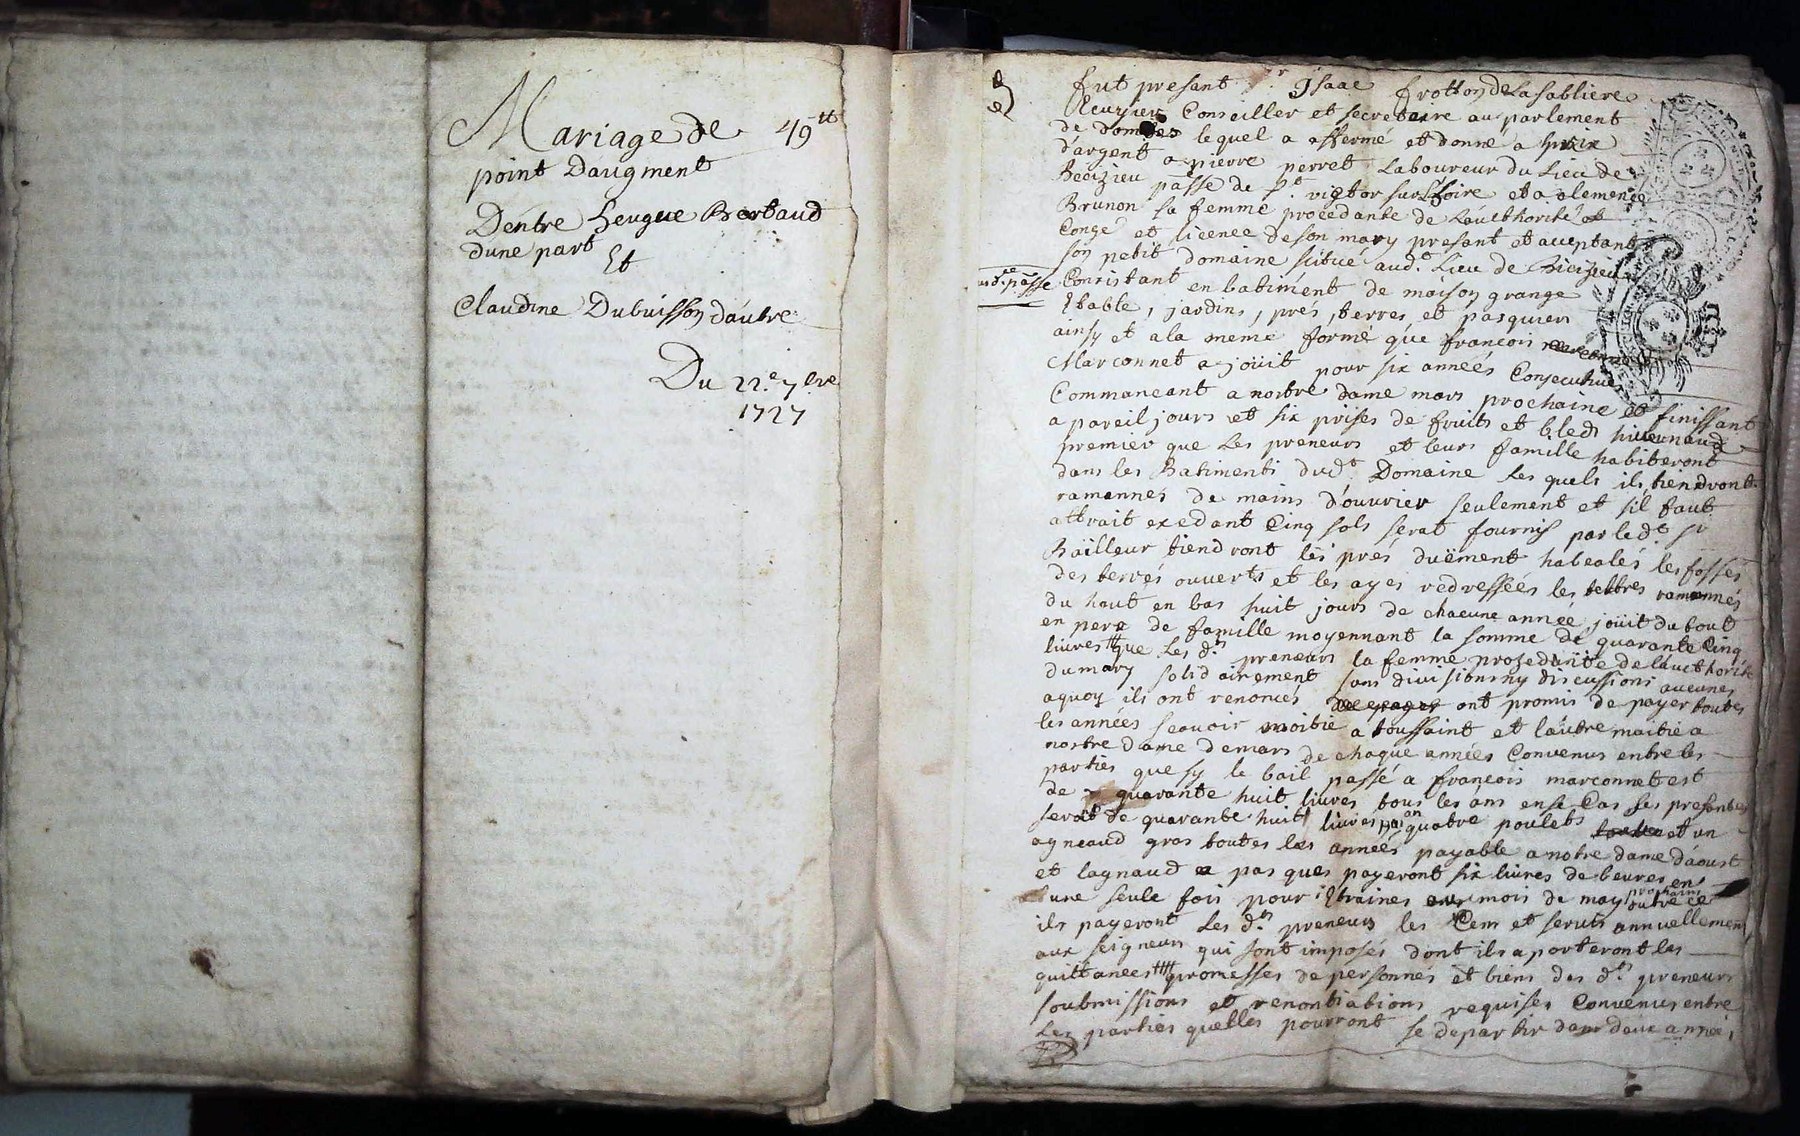 Mariage de 49tt
point Daugment
Dentre heugue Bertaud
dune part
Et
Claudine Dubuisson dautre
Du 22e 7bre
1727
fut presant Sr Isaac frotton de la sabliere
Ecuyier Conseiller et secretaire au parlement
de dombes lequel a affermé et donné a prix
dargent a pierre perret Laboureur du Lieu de
Becizieu passe de St victor sur Loire et a clemence
Brunon sa femme procedante de Laucthorité et
Congé et licence de son mary presant et acceptant
son petit domaine scitué audt Lieu de
audte passe
Consistant en batiment de maison grange
Etable, jardins, prés, terres, et pasquiers
ainsy et a la meme formé que francois
Marconnet a joüit pour six annéés Consecutives
Commancant a nostre dame mars prochaine et finissant
a pareil jours et six prises de fruits et bleds hiuernaud
premier que Les preneurs et leurs famille habiteront
dans les Batiments dudt Domaine Lesquels ils tiendront
ramennés de mains douurier seulement et sil faut
attrait exedant Cinq sols serat fournis par ledt sr
Bailleur tiendront les prés duëment habealés les fossés
des terrés ouverts et les ayes redresséés les tettres ramennés
du haut en bas huit jours de chacune année, joüit du tout
en pere de famille moyennant la somme de quarante Cinq
livres que Les dts preneurs la femme procedante de laucthorité
du mary solidairement sans divisions ny discussions aucunes
aquoy ils ont renoncés ont promis de payer toutes
les années scavoir moitié a toussaint et lautre moitié a
nostre dame de mars de chaque années Convenus entre les
parties que sy le bail passé a francois marconnet est
de quarante huit livres tous les ans en se Cas les presantes
serat de quarante huit livres quatre poulets et un
agneaud gros toutes les années payable a notre dame daoust
et lagnaud a pasques payeront six livres de beurre en
une seule fois pour Etraines au mois de may prochains outre ce
ils payeront Les dts preneurs les Cens et servis annuellement
aux seigneurs qui sont imposés dont ils aporteront les
quittances promesses de personnes et biens des dts preneurs
soubmissions et renontiations requises Convenus entre
Les parties quelles pourront se departir dans deux années